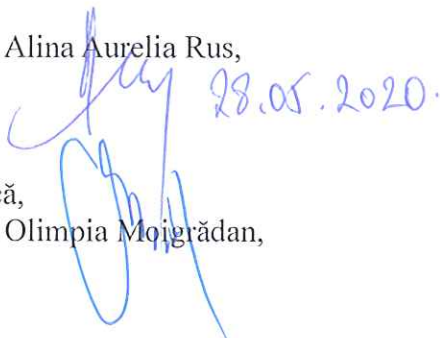 Alina Aurelia Rus,
28.05.2020.
că,
Olimpia Moigrădan,